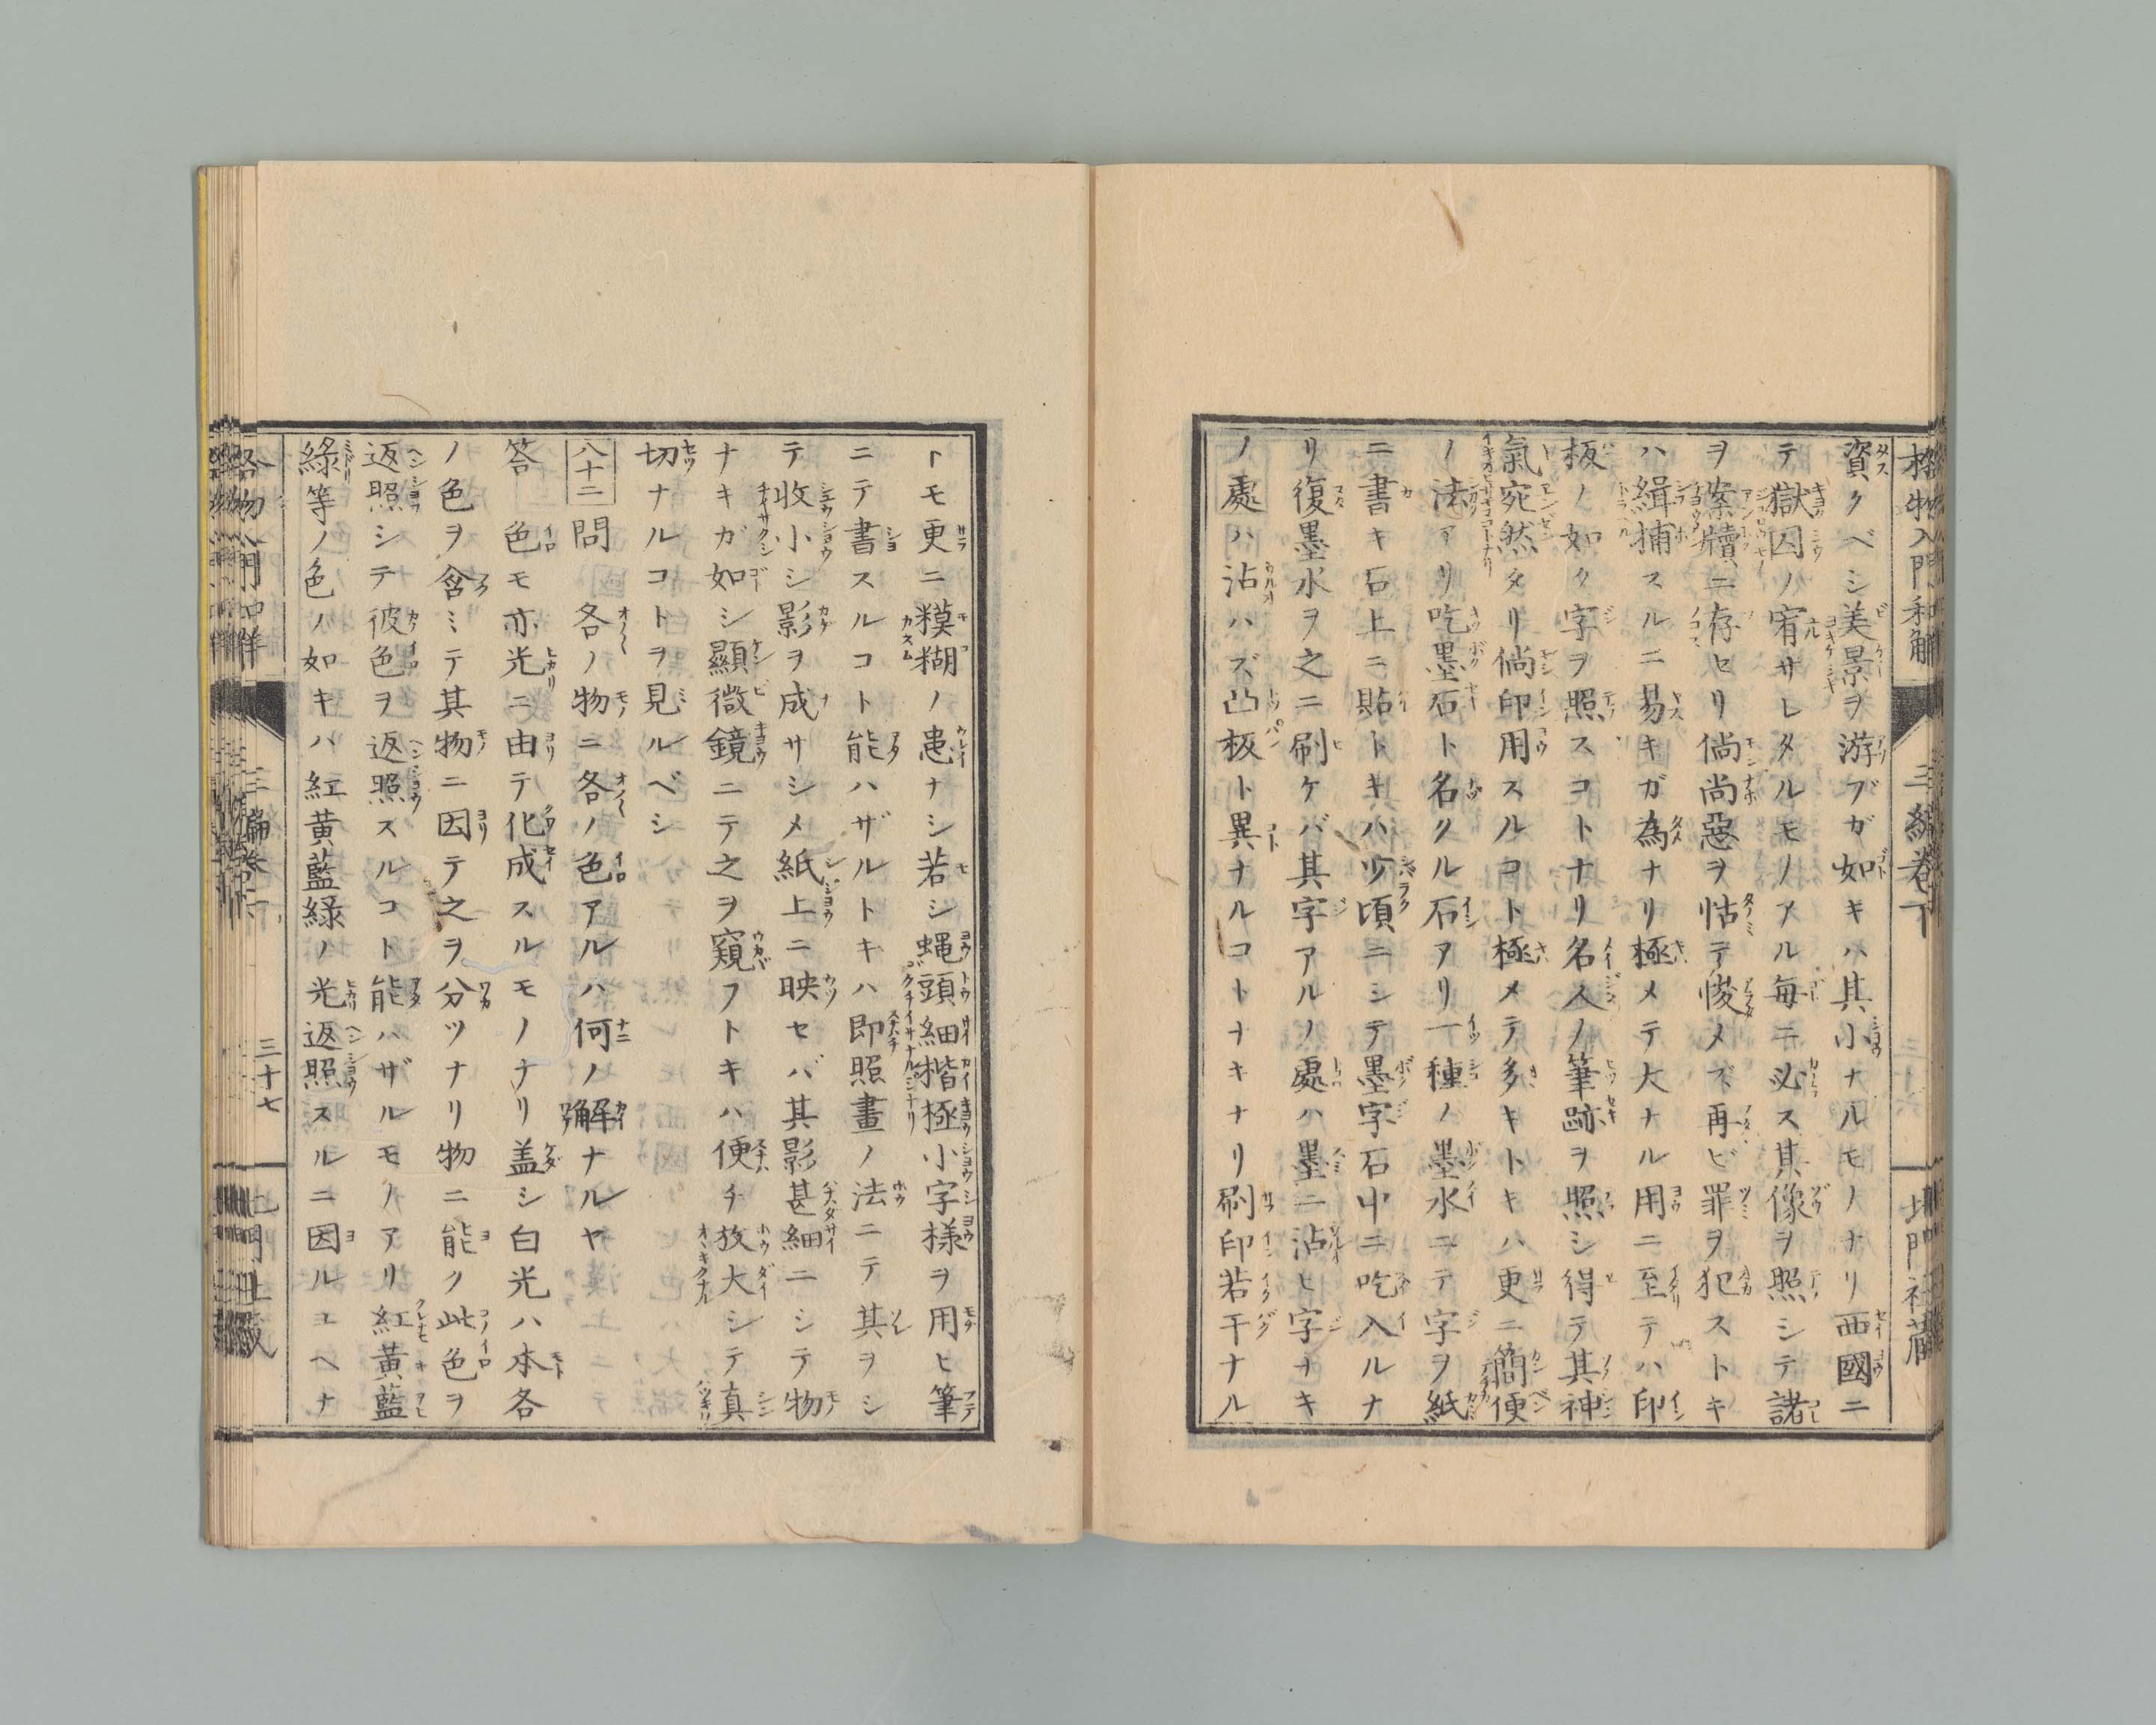 格物入門和解 三編巻下 北門社蔵
資クベシ美景ヲ游ブガ如キハ其小ナルモノナリ西國ニ
テ獄囚ノ宥サレタルモノアル毎ニ必ス其像ヲ照シテ諸
ヲ案牘ニ存セリ倘尚惡ヲ怙テ悛メズ再ビ罪ヲ犯ストキ
ハ緝捕スルニ易キガ為ナリ極メテ大ナル用ニ至テハ印
板ノ如ク字ヲ照スコトナリ名人ノ筆跡ヲ照シ得テ其神
氣宛然タリ倘印用スルコト極メテ多キトキハ更ニ簡便
ノ法アリ吃墨石ト名クル石アリ一種ノ墨水ニテ字ヲ紙
ニ書キ石上ニ貼トキハ少頃ニシテ墨字石中ニ吃入ルナ
リ復墨水ヲ之ニ刷ケバ其字アルノ處ハ墨ニ沾ヒ字ナキ
ノ處ハ沾ハズ凸板ト異ナルコトナキナリ刷印若干ナル
トモ更ニ糢糊ノ患ナシ若シ蠅頭細楷極小字様ヲ用ヒ筆
ニテ書スルコト能ハザルトキハ即照畫ノ法ニテ其ヲシ
テ收小シ影ヲ成サシメ紙上ニ映セバ其影甚細ニシテ物
ナキガ如シ顯微鏡ニテ之ヲ窺フトキハ便チ放大シテ真
切ナルコトヲ見ルベシ
八十二 問 各ノ物ニ各ノ色アルハ何ノ解ナルヤ
答 色モ亦光ニ由テ化成スルモノナリ盖シ白光ハ本各
ノ色ヲ含ミテ其物ニ因テ之ヲ分ツナリ物ニ能ク此色ヲ
返照シテ彼色ヲ返照スルコト能ハザルモノアリ紅黄藍
綠等ノ色ノ如キハ紅黄藍綠ノ光返照スルニ因ルユヘナ
格物入門和解 三編巻下 三十七 北門社蔵